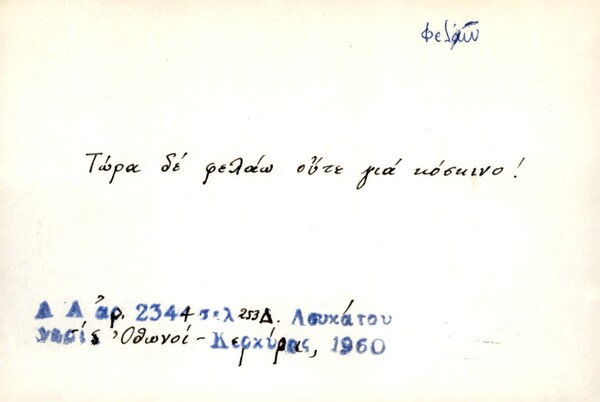 Φελάω
Τώρα δέ φελάω οὔτε γιά κόσκινο!
Λ Α ἀρ. 2344 σελ 253 Δ. Λουκάτου
νησίς Ὀθωνοί - Κερκύρας, 1960